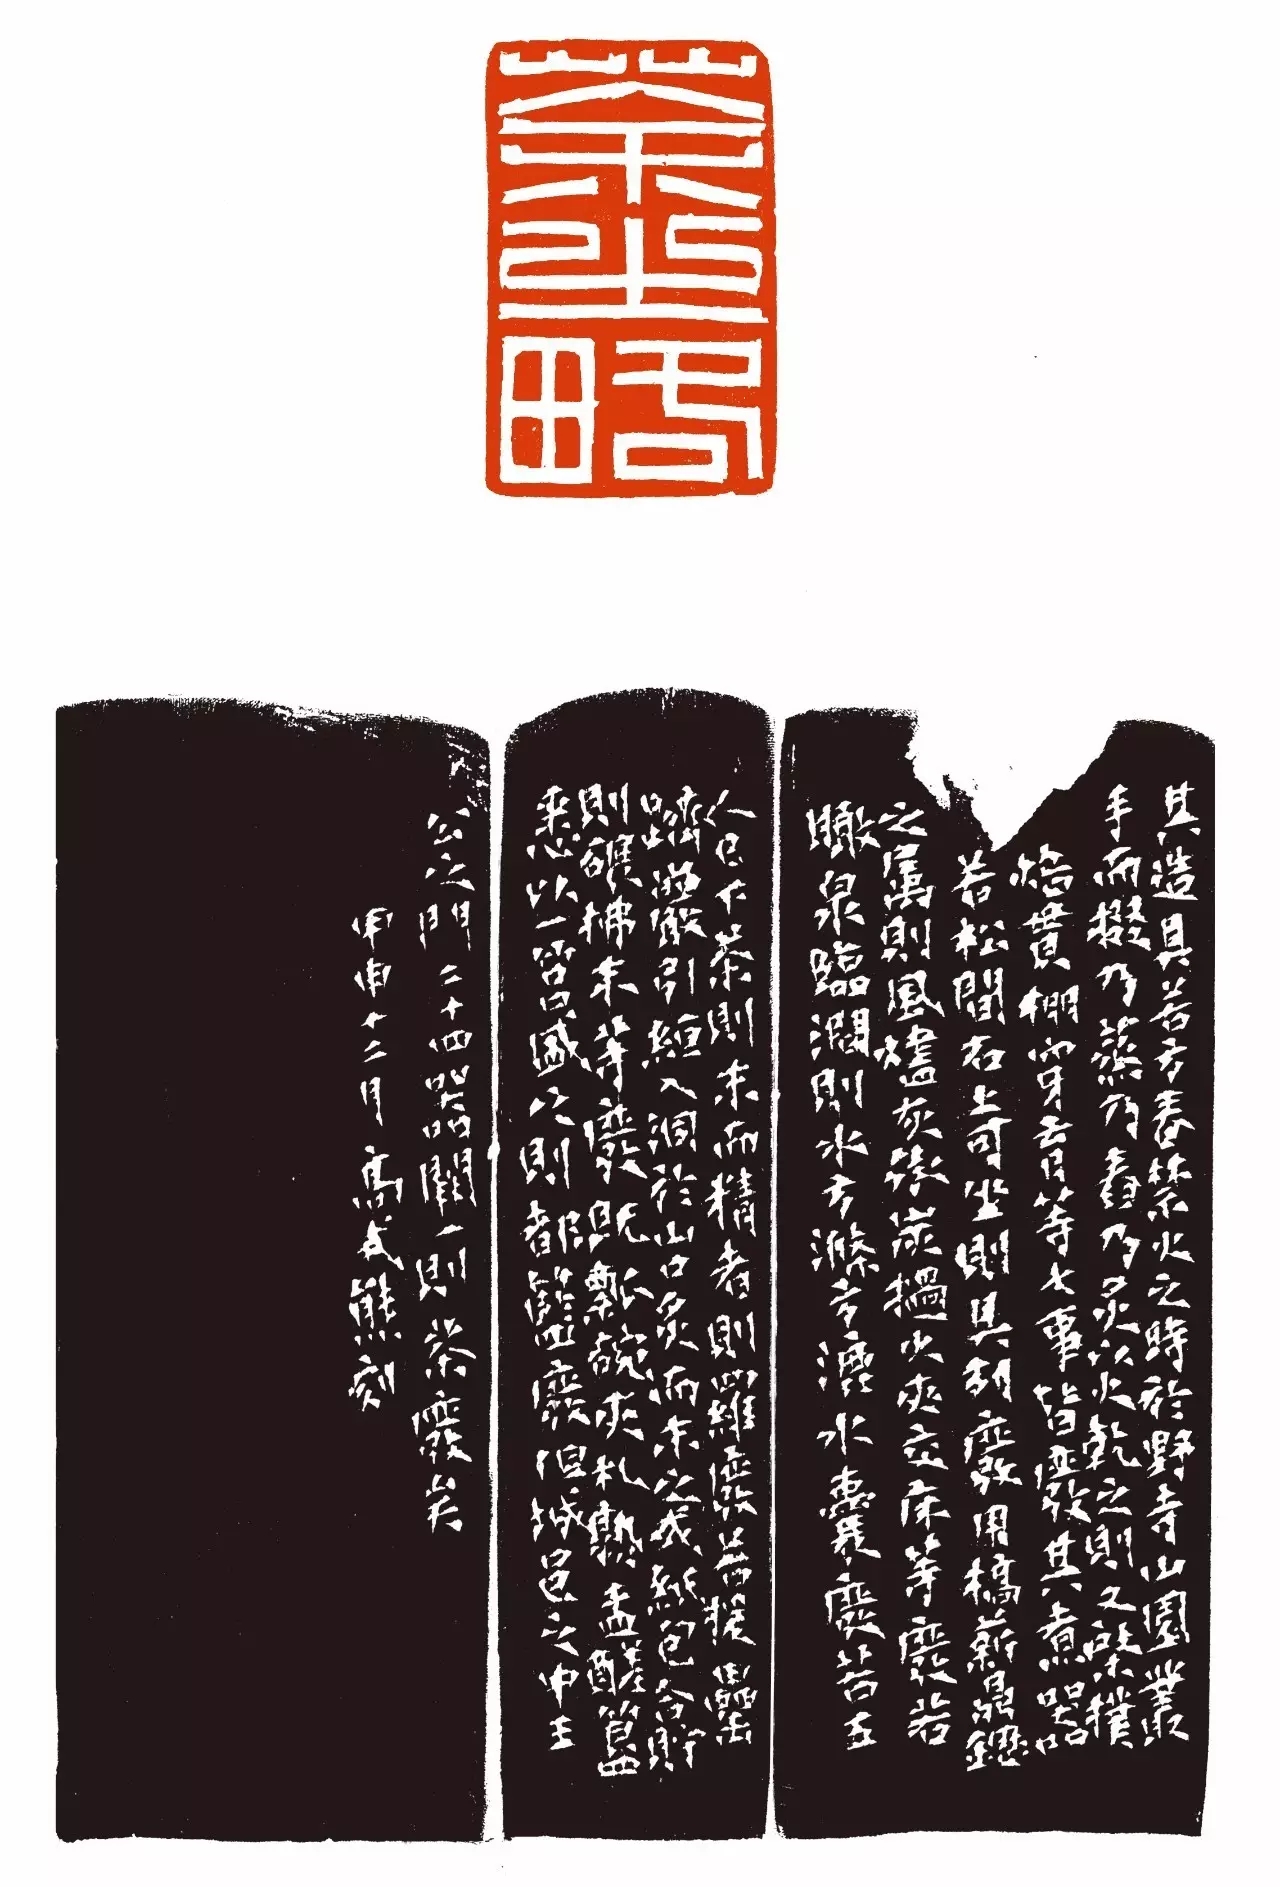 茶之略
其造具若方春禁火之時於野寺山園叢
手而掇乃蒸乃舂乃炙以火乾之則又棨撲
焙貫棚穿育等七事皆廢其煮器
若松間石上可坐則具列廢用槁薪鼎䥶
之屬則風爐灰承炭撾火夾交床等廢若
瞰泉臨澗則水方滌方漉水囊廢若五
人已下茶則末而精者則羅廢若援罍
躋巖引絙入洞於山口炙而末之或紙包合貯
則碾拂末等廢既瓢碗夾札熟盂醝簋
悉以一筥盛之則都籃廢但城邑之中王
公之門二十四器闕一則茶廢矣
甲申十二月高式熊刻